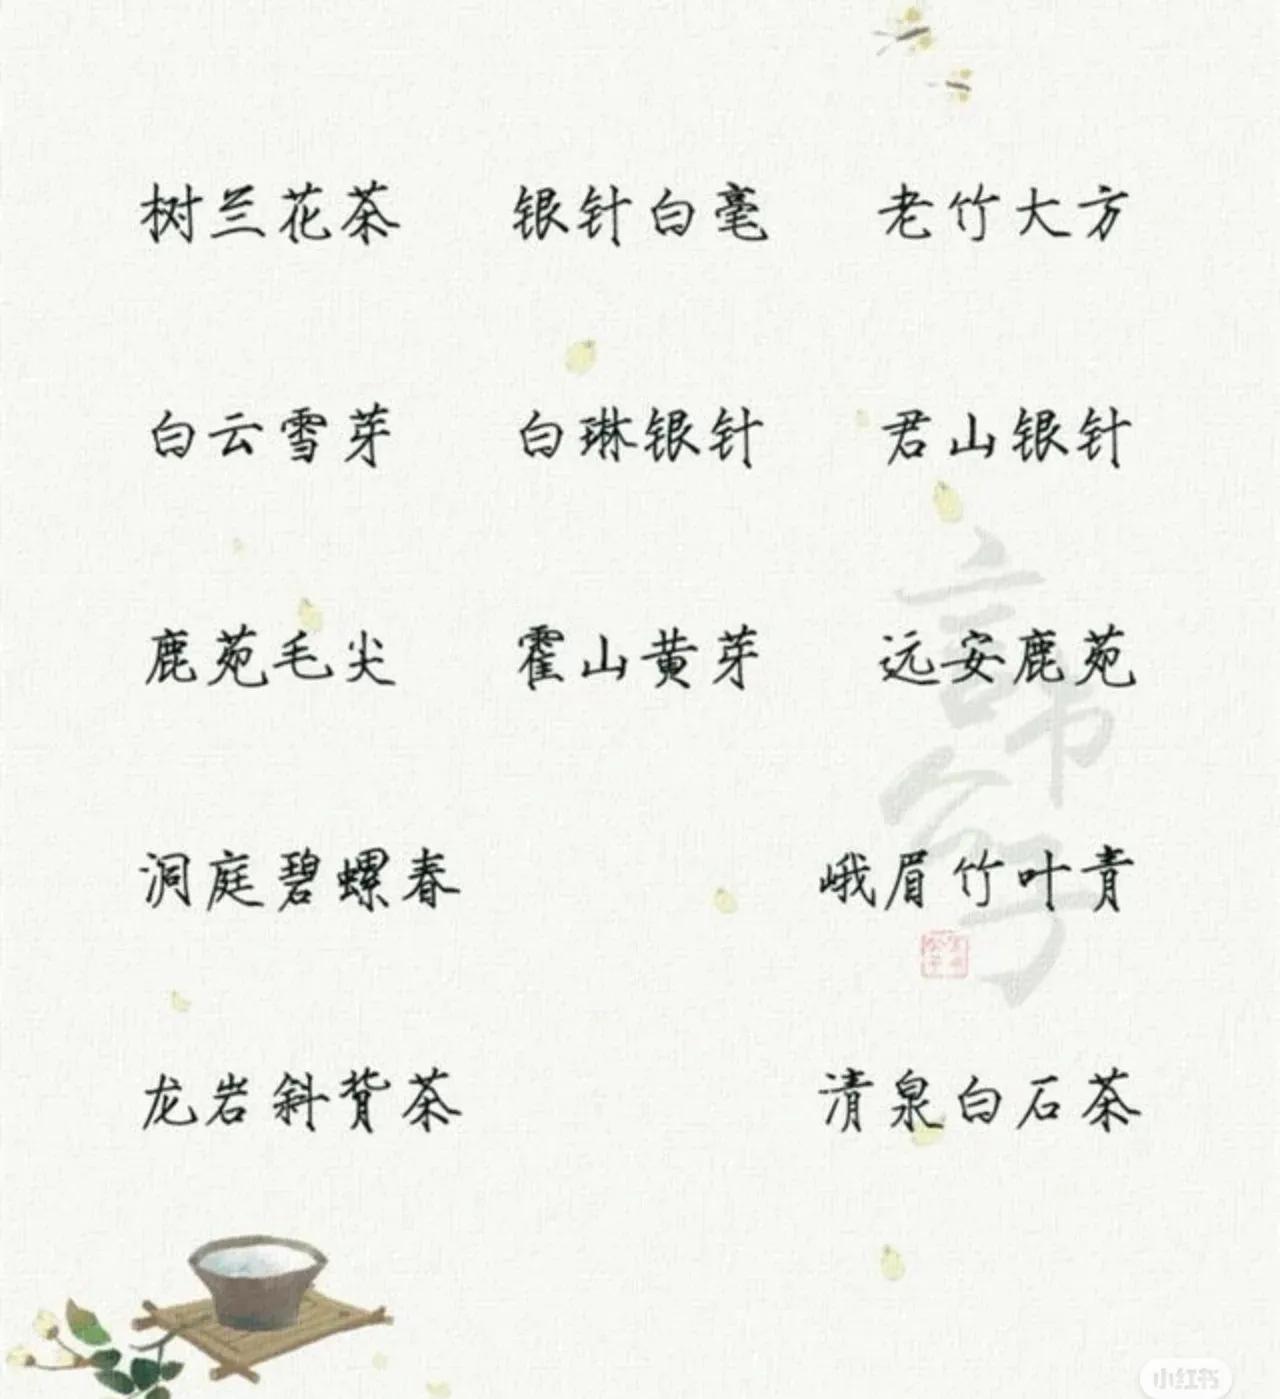 树兰花茶 银针白毫 老竹大方
白云雪芽 白琳银针 君山银针
鹿苑毛尖 霍山黄芽 远安鹿苑
洞庭碧螺春 峨眉竹叶青
龙岩斜背茶 清泉白石茶
小红书